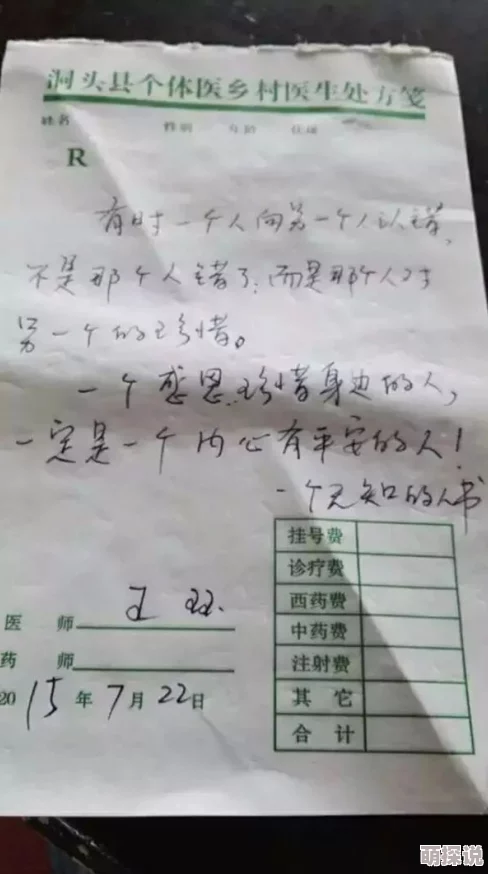 洞头县个体医乡村医生处方笺
姓名 性别 年龄 住址
R
有时一个人向另一个人认错,
不是那个人错了,而是那个人对
另一个的珍惜。
一个感恩.珍惜身边的人,
一定是一个内心有平安的人!
一个无知的人书
挂号费
诊疗费
西药费
中药费
注射费
其它
合计
医师 王
药师
2015年7月22日
萌探说